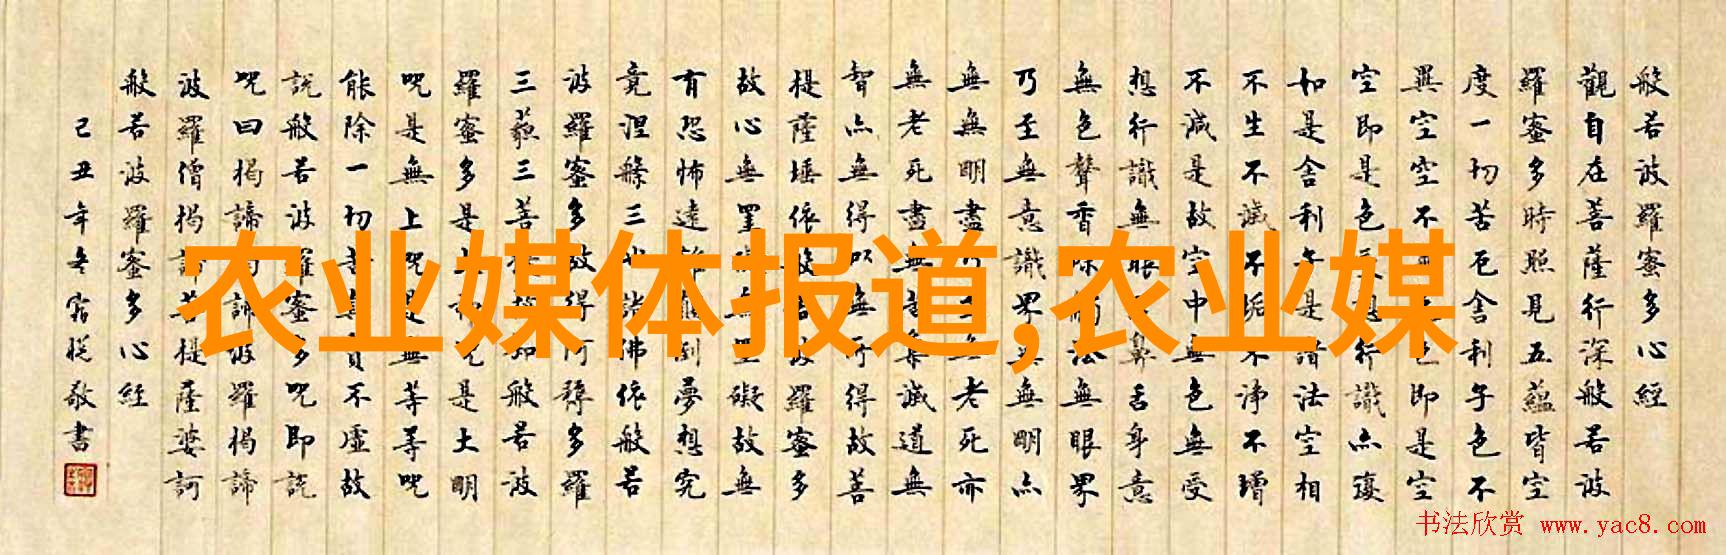 般若波羅蜜多心經
觀自在菩薩行深般若波
羅蜜多時照見五蘊皆空
度一切苦厄舍利子色不
異空空不異色色即是空
空即是色受想行識亦復
如是舍利子是諸法空相
不生不滅不垢不淨不增
不減是故空中無色無受
想行識無眼耳鼻舌身意
無色聲香味觸法無眼界
乃至無意識界無無明亦
無無明盡乃至無老死亦
無老死盡無苦集滅道無
智亦無得以無所得故菩
提薩埵依般若波羅蜜多
故心無罣礙無罣礙故無
有恐怖遠離顛倒夢想究
竟涅槃三世諸佛依般若
波羅蜜多故得阿耨多羅
三藐三菩提故知般若波
羅蜜多是大神咒是大明
咒是無上咒是無等等咒
能除一切苦真實不虛故
說般若波羅蜜多咒即說
咒曰揭諦揭諦波羅揭諦
波羅僧揭諦菩提薩婆訶
般若波羅蜜多心經
己丑年冬敬書
农业媒体报道,农业媒
书法欣赏 www.yac8.com